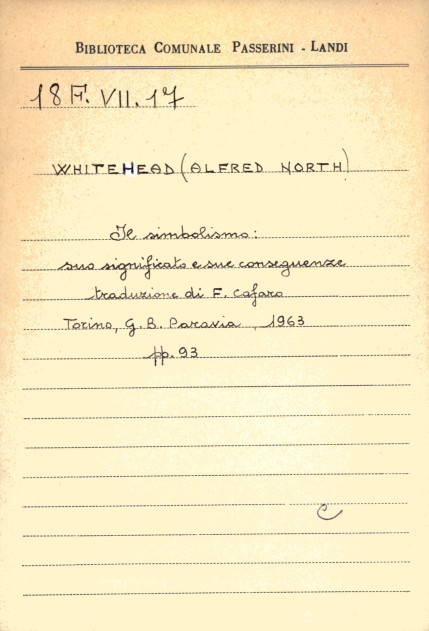 BIBLIOTECA COMUNALE PASSERINI - LANDI
18 F. VII. 17
WHITEHEAD (ALFRED NORTH)
Il simbolismo:
suo significato e sue conseguenze
traduzione di F. Cafaro
Torino, G. B. Paravia, 1963
pp. 93
C